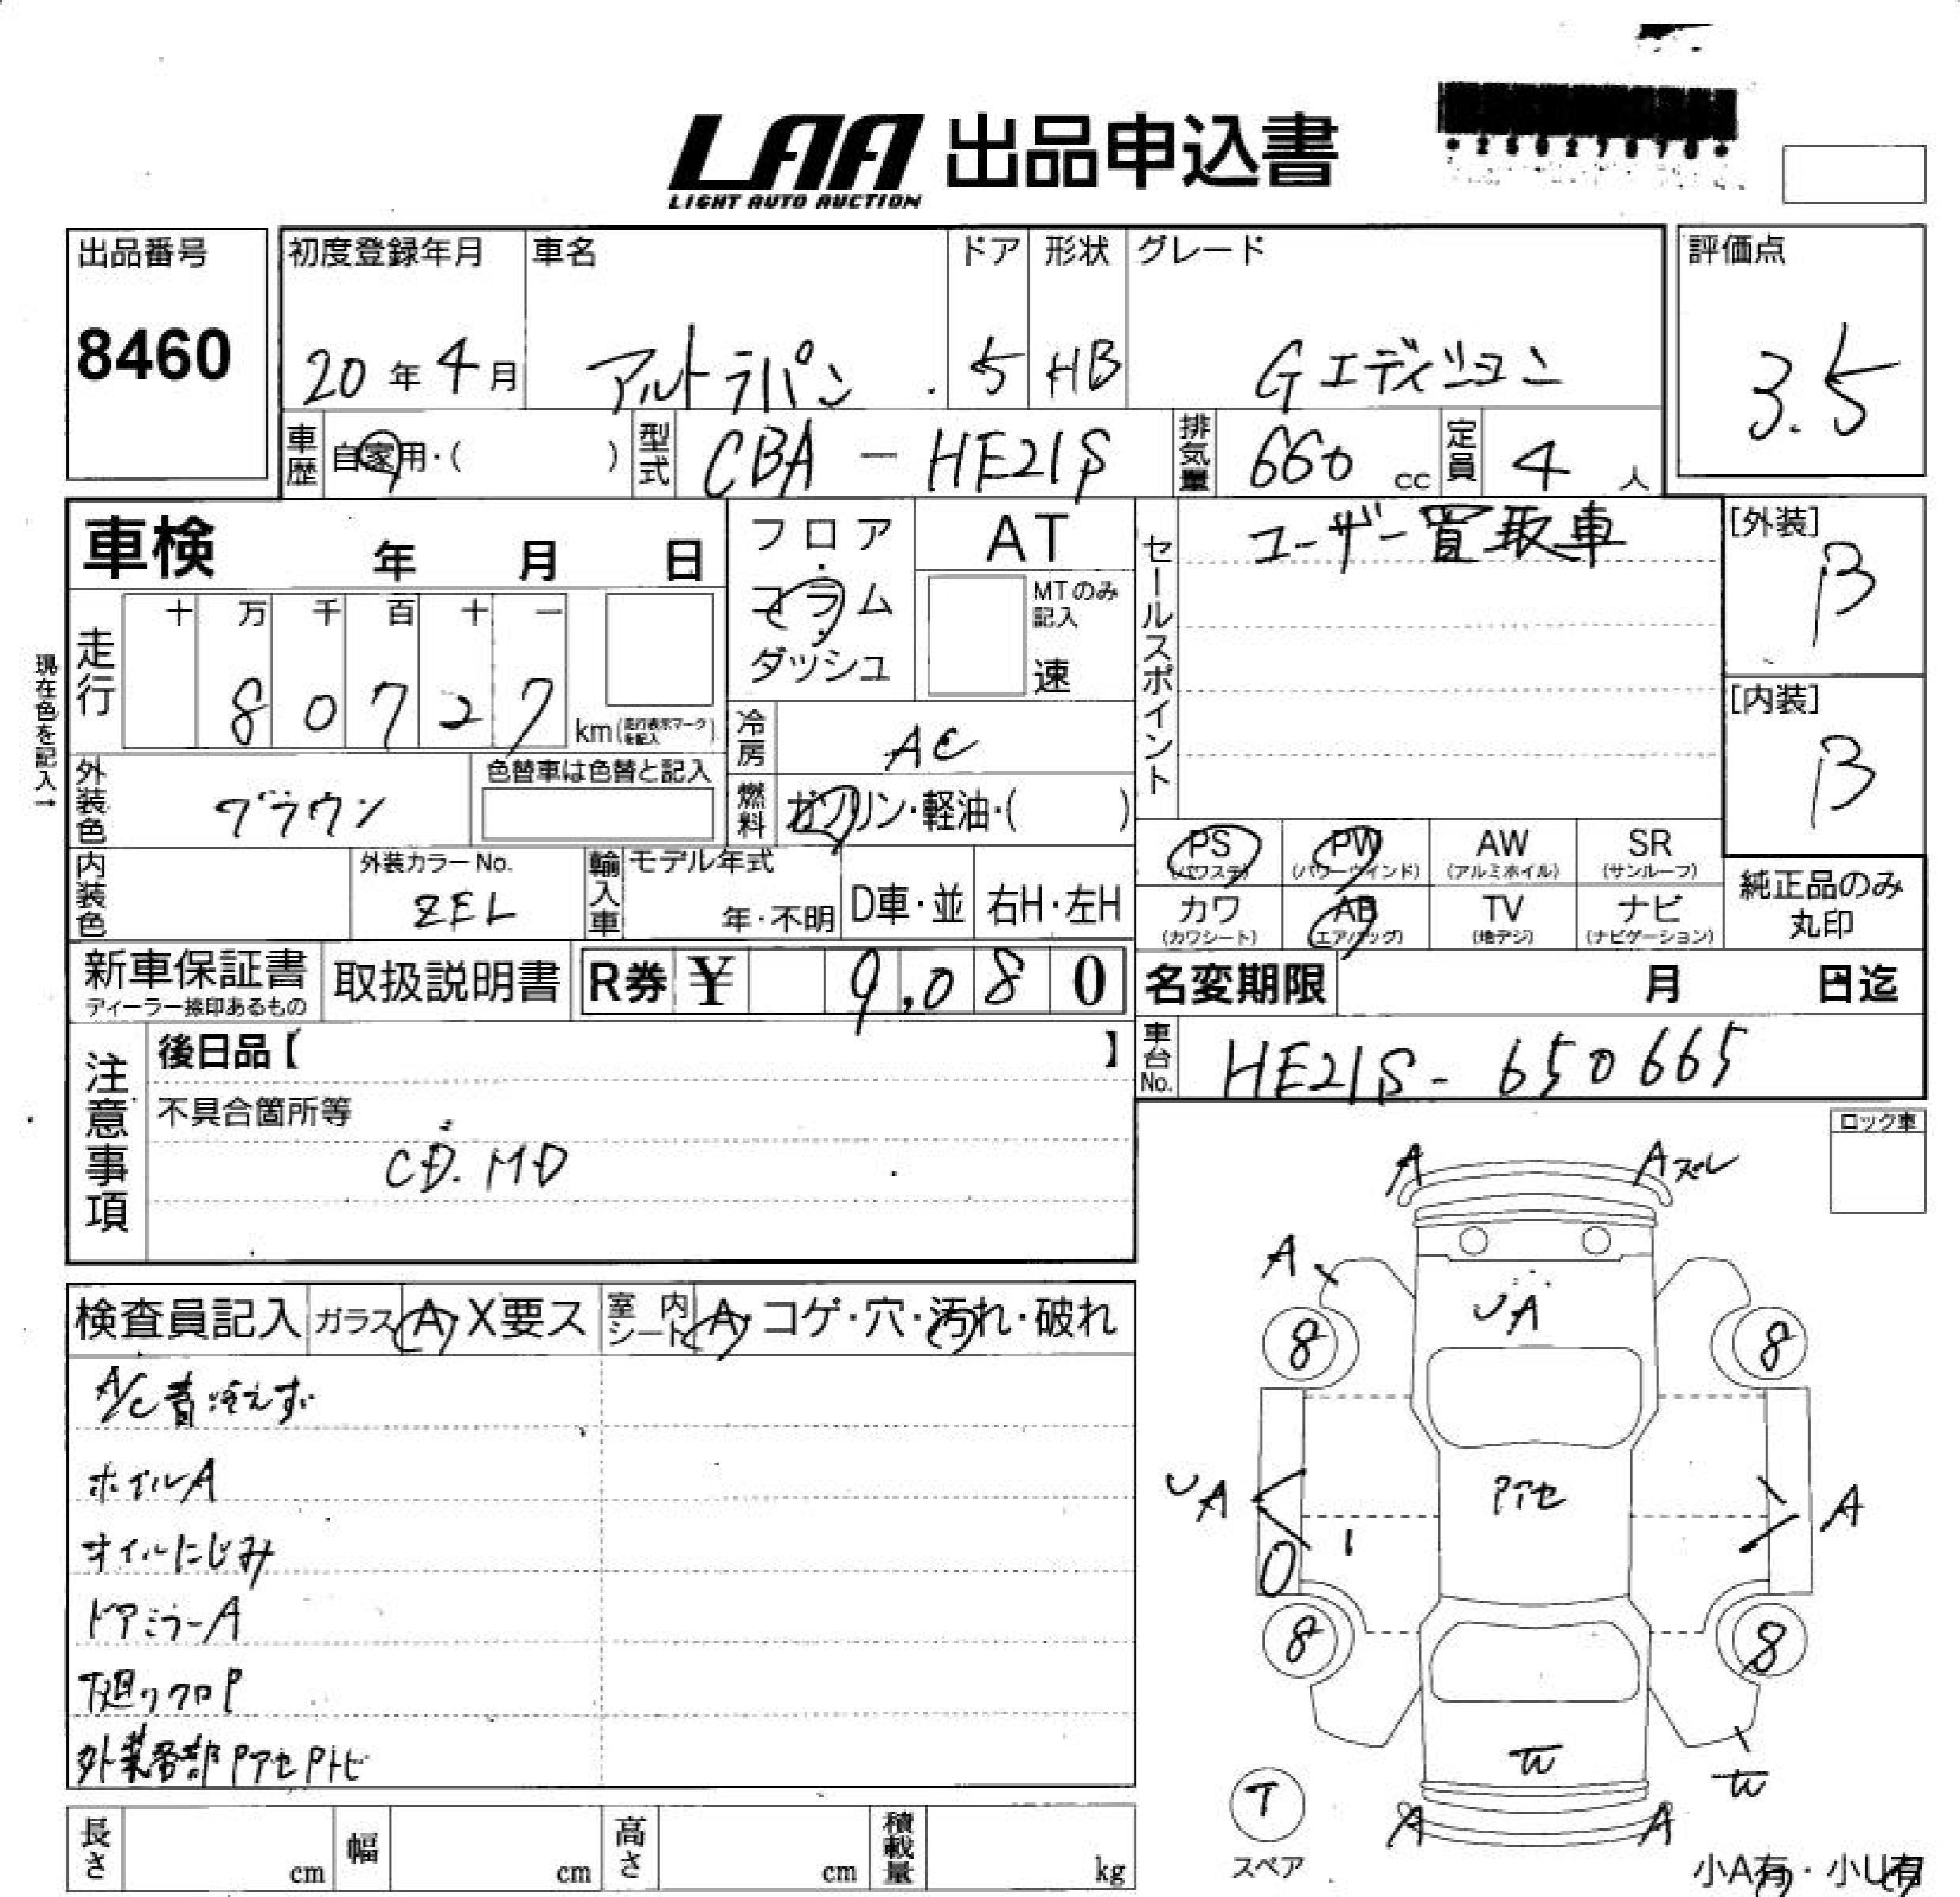 LAA 出品申込書
LIGHT AUTO AUCTION
出品番号
8460
初度登録年月 車名 ドア 形状 グレード
20年4月 アルトラパン 5 HB Gエディション
評価点
3.5
車歴 自家用・( ) 型式 CBA-HE21S 排気量 660 cc 定員 4 人
車検 年 月 日
フロア・コラム・ダッシュ
AT
MTのみ記入
速
セールスポイント
ユーザー買取車
[外装]
B
[内装]
B
現在色を記入→
走行 十 万 千 百 十 一
8 0 7 2 7 km(走行表示マークを記入)
冷房 AC
外装色 ブラウン
色替車は色替と記入
燃料 ガソリン・軽油・( )
内装色
外装カラーNo.
ZEL
輸入車 モデル年式
年・不明 D車・並 右H・左H
PS AW SR
(パワステ) (パワーウィンド) (アルミホイル) (サンルーフ)
PW
カワ AB TV ナビ
(カワシート) (エアバッグ) (地デジ) (ナビゲーション)
純正品のみ
丸印
新車保証書
ディーラー捺印あるもの
取扱説明書
R券 ¥ 9,080
名変期限 月 日迄
車台No. HE21S-650665
注意事項
後日品【 】
不具合箇所等
CD.MD
ロック車
検査員記入 ガラス A・X要ス 室内シート A・コゲ・穴・汚れ・破れ
ホイルA
オイルにじみ
ドアミラーA
下廻りクロP
外装各部PアセPトビ
A Aズレ
A
UA
8 8
UA Pアセ A
8 8
W
W
T
A A
スペア
小A有・小U有
長さ cm 幅 cm 高さ cm 積載量 kg